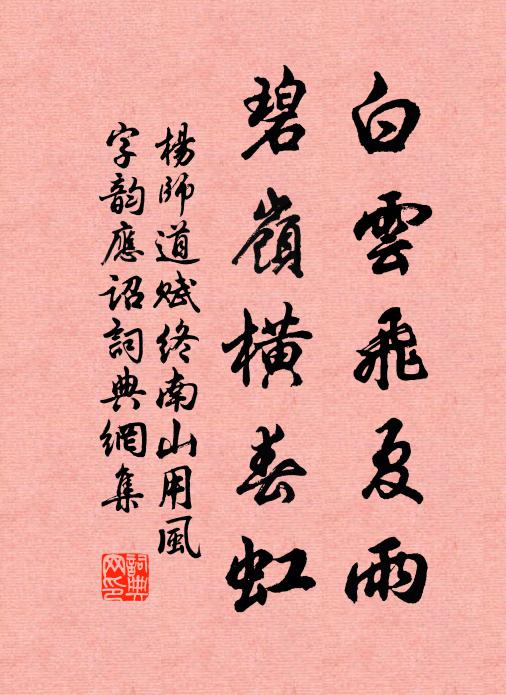 白雲飛夏雨
碧嶺橫春虹
楊師道賦終南山用風
字韵應詔詞典網集
詞典网印